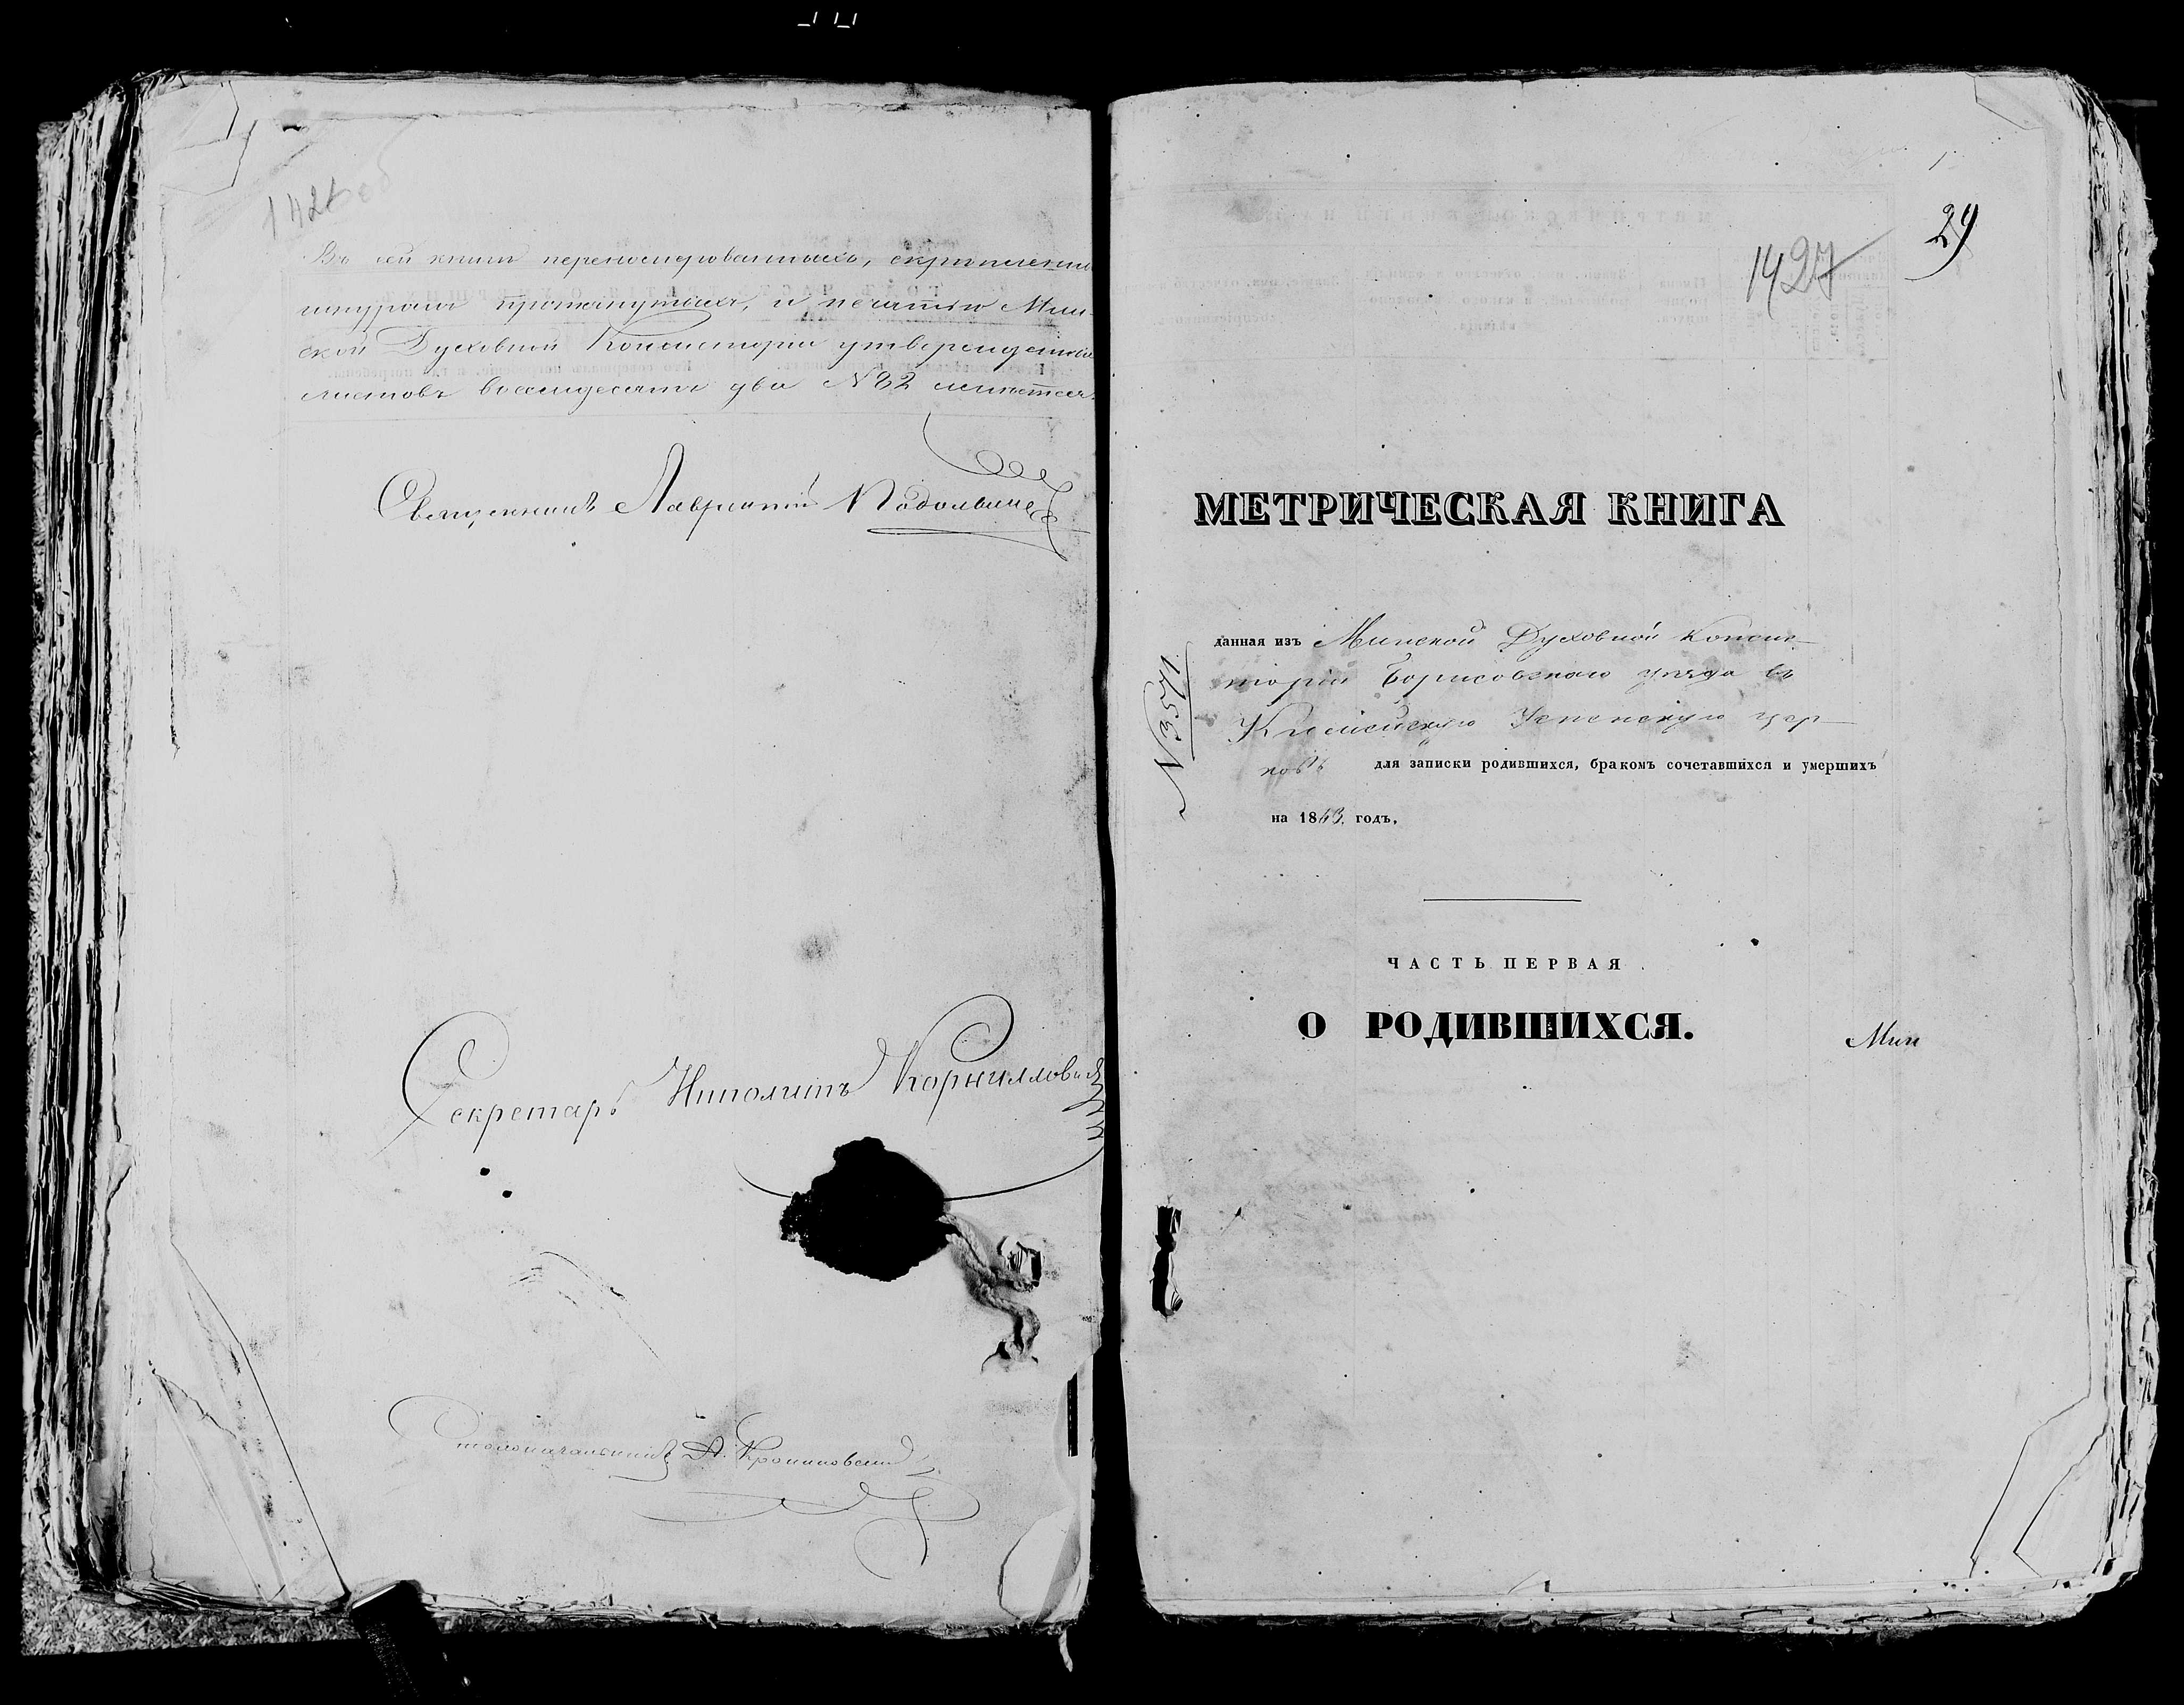 1426 об
Въ сей книгѣ перенумерованныхъ, скрѣпленныхъ
шнуромъ протянутыхъ, и печатью Мин-
ской Духовной Консисторіи утвержденныхъ
листовъ восемьдесятъ два №82 имѣется.
Священникъ Лаврентій
Секретарь Иполитъ Корнилловичъ
Столоначальникъ А.
29
1427
МЕТРИЧЕСКАЯ КНИГА
данная изъ Минской Духовной Консис-
торіи Борисовскаго уѣзда въ
Успенскую цер-
ковь для записки родившихся, бракомъ сочетавшихся и умершихъ
на 1863 годъ.
ЧАСТЬ ПЕРВАЯ.
О РОДИВШИХСЯ.
Мин